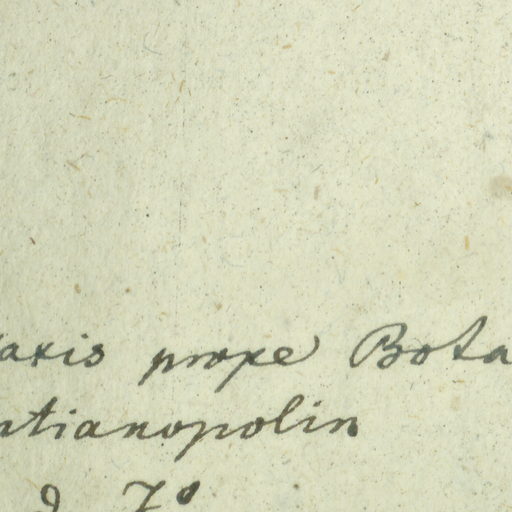 axis prope Bota
ntianopolin
d 7°